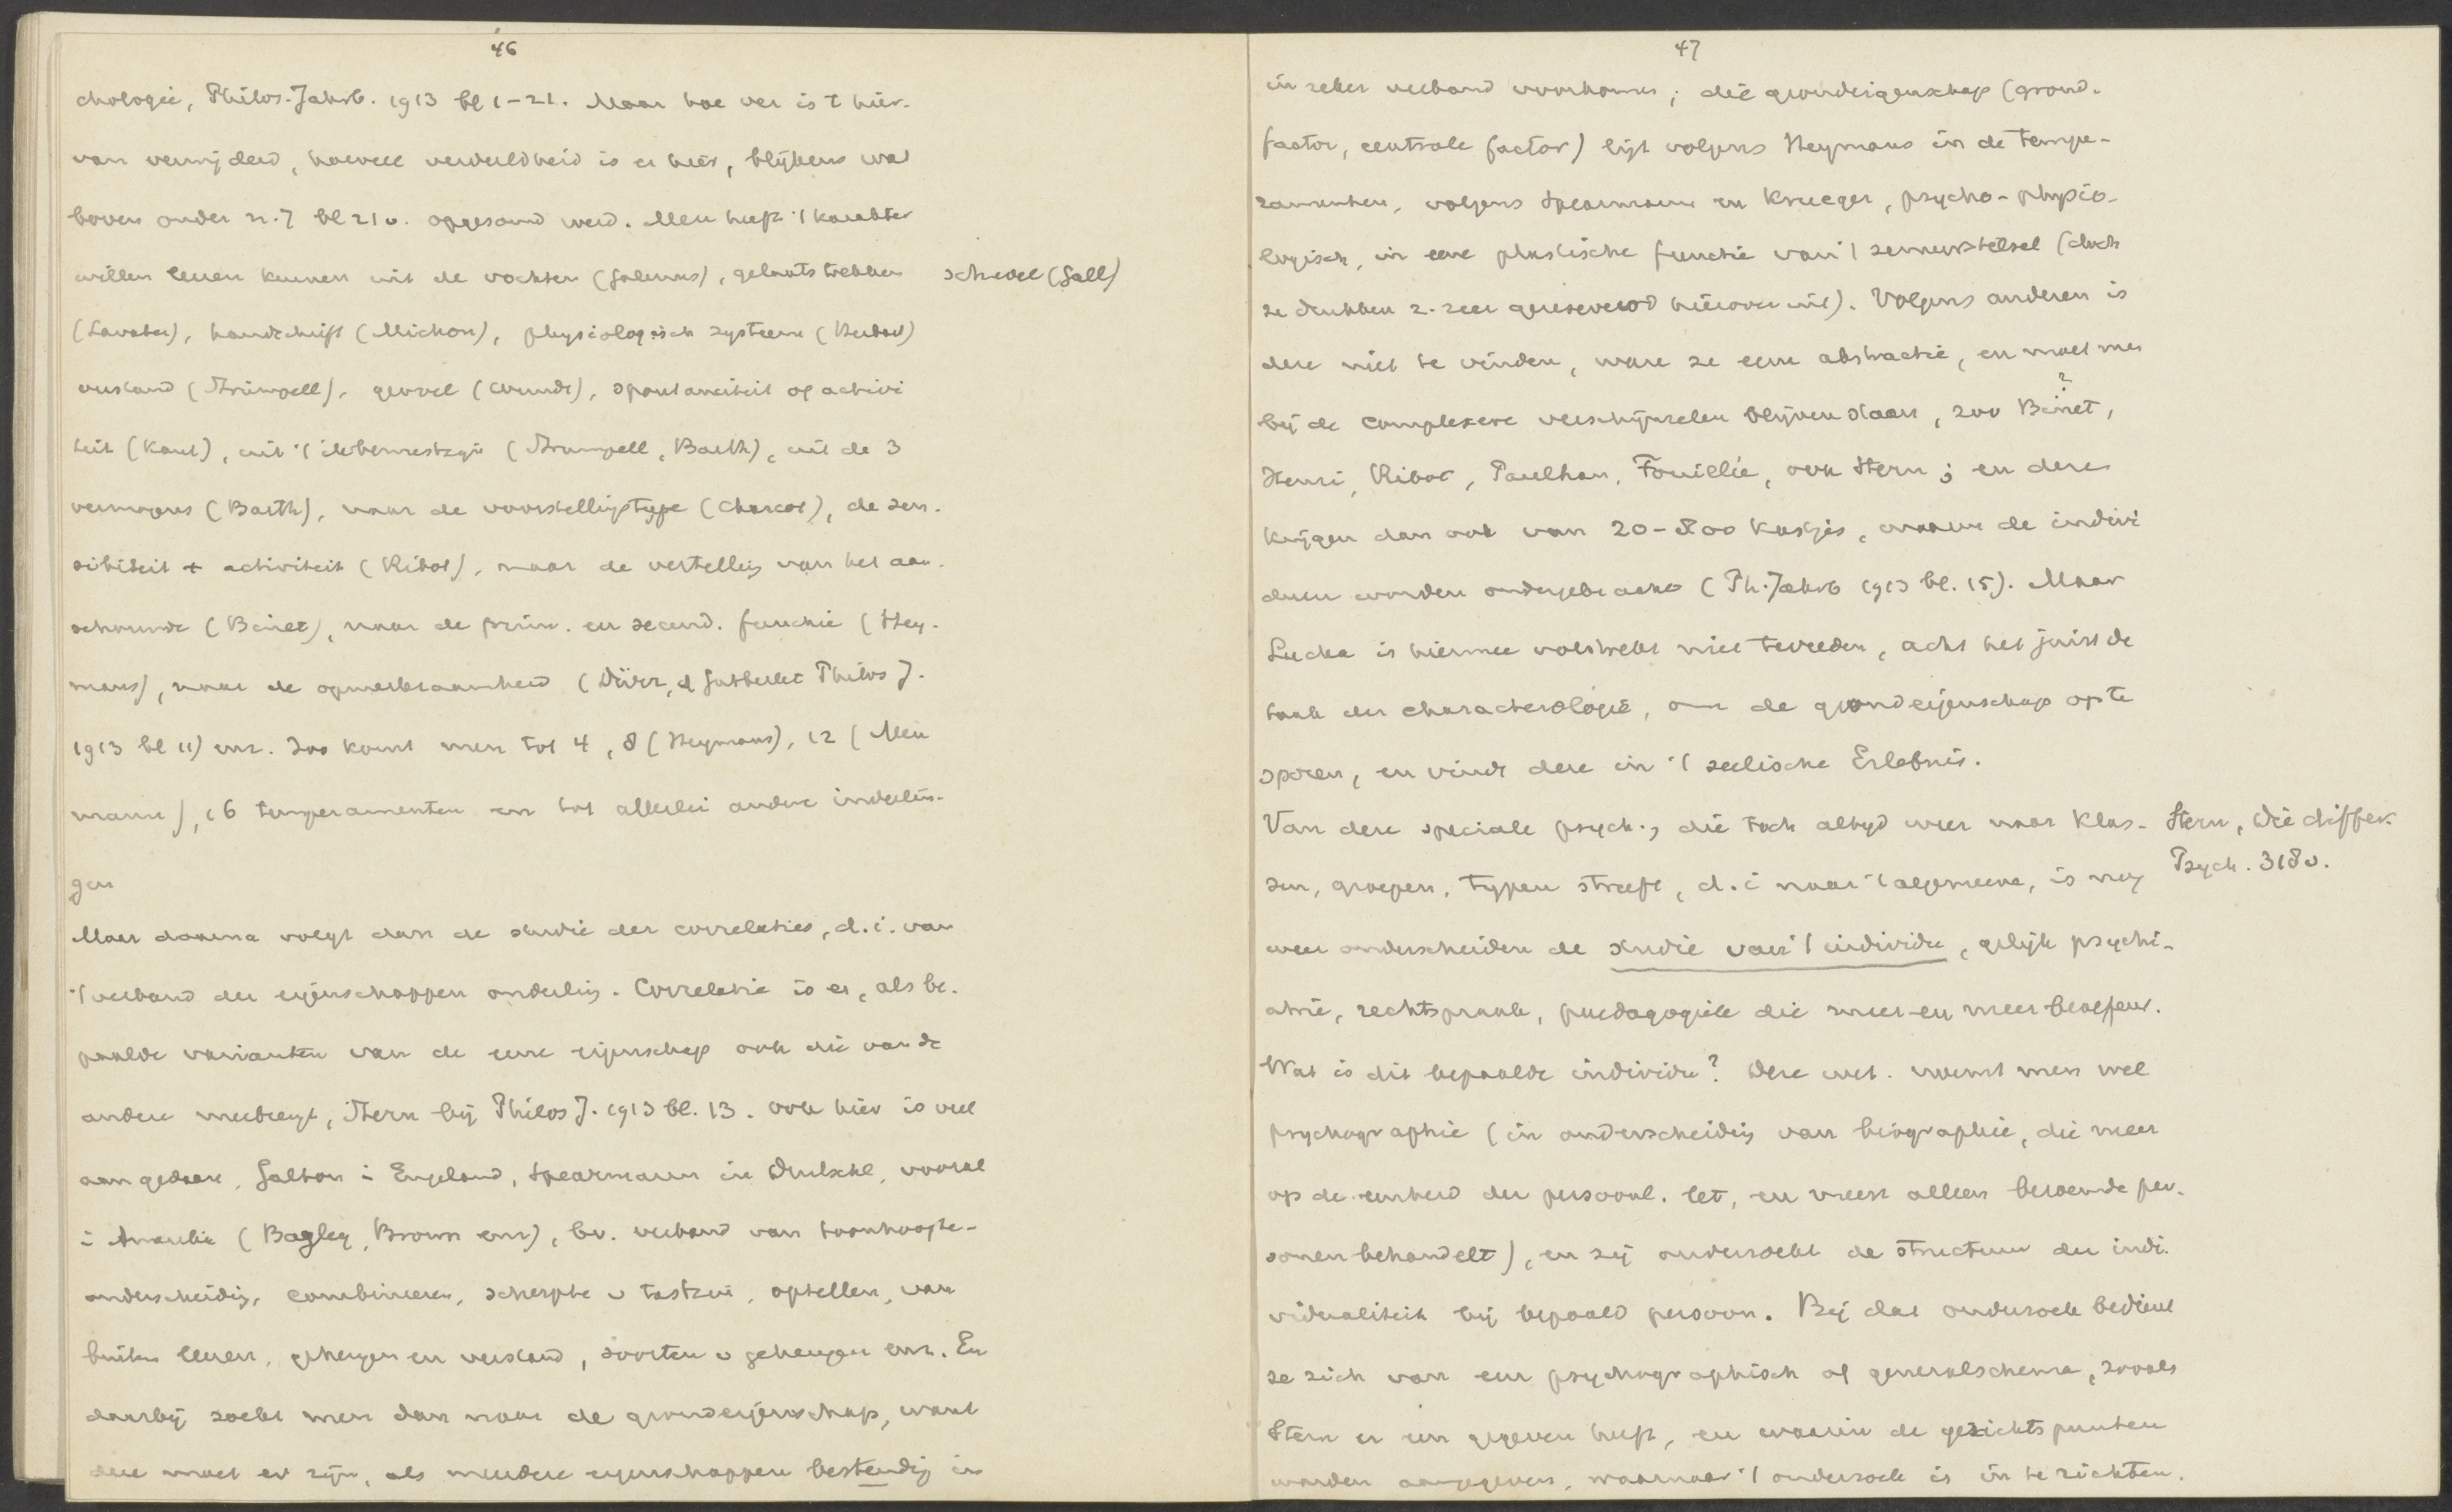 46
chologie, Philos. Jahrb. 1913 bl 1-21. Maar hoe ver is 't hier-
van verwijderd, hoeveel verdeeldheid is er hier, blijkens wat
boven onder n. 7 bl 21 v. opgesomd werd. Men heeft 't karakter
willen leeren kennen uit de vochten (Galenus), gelaatstrekken schedel (Gall)
(Lavater), handschrift (Michon), physiologisch systeem
verstand (Strümpell), gevoel (Wundt), spontaneiteit of activi
teit (Kant), uit 't (Strumpell, Barth), uit de 3
vermogens (Barth), naar de voorstellingstype (Charcot), de sen-
sibiliteit + activiteit (Ribot), naar de vertelling van het aan-
schouwde (Binet), naar de prim. en secund. functie (Hey-
mans), naar de opmerkzaamheid (Dürr, cf Gutberlet Philos J.
1913 bl 11) enz. Zoo komt men tot 4, 8 (Heymans), 12 (Meu
mann), 16 temperamenten en tot allerlei andere indeelin-
gen
Maar daarna volgt dan de studie der correlaties, d.i. van
't verband der eigenschappen onderling. Correlatie is er, als be-
paalde varianten van de eene eigenschap ook die van de
andere meebrengt, Stern bij Philos J. 1913 bl. 13. Ook hier is veel
aan gedaan, Galton i Engeland, Spearmann in Duitschl, vooral
i Amerika (Bagley, Brown enz), bv. verband van toonhoogte-
onderscheiding, combineeren, scherpte v tastzin, optellen, van
buiten leeren, geheugen en verstand, soorten v geheugen enz. En
daarbij zoekt men dan naar de grondeigenschap, want
deze moet er zijn, als meerdere eigenschappen bestendig in
47
in zeker verband voorkomen; die grondeigenschap (grond-
factor, centrale factor) ligt volgens Heymans in de tempe-
ramenten, volgens Spearmann en Krueger, psycho-physio-
logisch, in eene plastische functie van 't zenuwstelsel (doch
ze drukken z. zeer gereserveerd hierover uit). Volgens anderen is
deze niet te vinden, ware ze eene abstractie, en moet men
bij de complexere verschijnselen blijven staan, zoo Binet, ?
Henri, Ribot, Paulhan, Fouillée, ook Stern; en deze
krijgen dan ook van 20-800 kastjes, waarin de indivi
duen worden ondergebracht (Ph. Jahrb 1913 bl. 15). Maar
Lucka is hiermee volstrekt niet tevreden, acht het juist de
taak der characterologie, om de grondeigenschap op te
sporen, en vindt deze in 't seelische Erlebnis.
Van deze speciale psych., die toch altijd weer naar klas- Stern, Die differ.
sen, groepen, typen streeft, d.i naar 't algemeene, is nog Psych. 318 v.
weer onderscheiden de studie van 't individu, gelijk psychi-
atrie, rechtspraak, paedagogiek die meer en meer beoefent.
Wat is dit bepaalde individu? Deze wet. noemt men wel
psychographie (in onderscheiding van biographie, die meer
op de eenheid der persoonl. let, en meest alleen beroemde per-
sonen behandelt), en zij onderzoekt de structuur der indi-
vidualiteit bij bepaald persoon. Bij dat onderzoek bedient
ze zich van een psychographisch of generalschema, zooals
Stern er een gegeven heeft, en waarin de gezichtspunten
worden aangegeven, waarnaar 't onderzoek is in te richten.